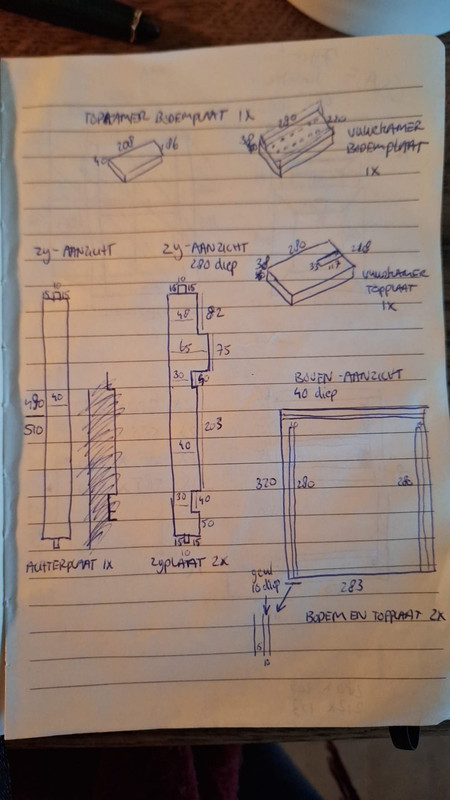 TOPKAMER BODEMPLAAT 1X
208
86
40
280
220
VUURKAMER
BODEMPLAAT
1X
ZY-AANZICHT
10
15 15
40
490
510
ACHTERPLAAT 1X
ZY-AANZICHT
280 diep
10
15 15
48
82
65
75
30
40
203
40
30
40
50
15 15
10
ZYPLAAT 2X
280
35
VUURKAMER
TOPPLAAT
1X
BOVEN-AANZICHT
40 diep
320
280
280
283
10 diep
BODEM EN TOPPLAAT 2X